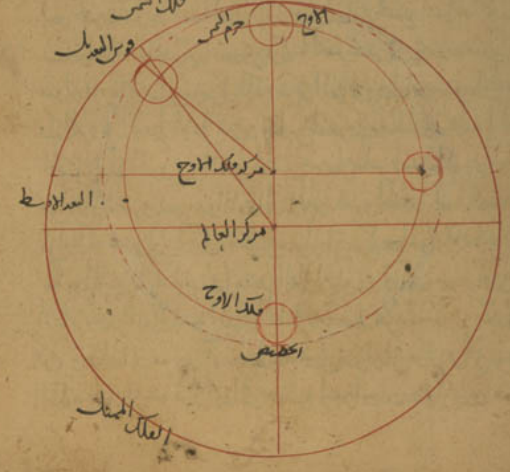 فلك الشمس
الاوج
جرم الشمس
قوس التعديل
مركز فلك الاوج
البعد الاوسط
مركز العالم
فلك الاوج
الحضيض
الفلك الممثل